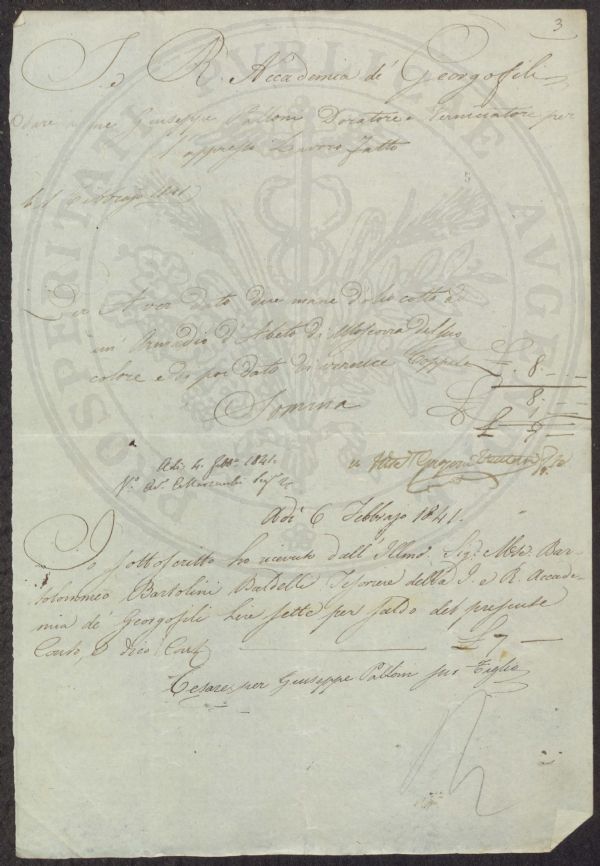 3
I. e R. Accademia de' Georgofili
Dare a me Giuseppe Palloni Doratore e Verniciatore per
l'appresso Lavoro fatto
Febbrajo 1841
Per Aver dato due mane d'olio cotto ad
un' Armadio d'Abeto di Moscovia del suo
colore e di poi dato di vernice Coppale £. 8. -
Somma £ 8. -
1
£ 7 -
Adi 4 Febb. 1841.
Adi 6 Febbrajo 1841.
Io sottoscritto ho ricevuto dall' Illmo. Sig. Mse. Bar-
tolommeo Bartolini Baldelli Tesoriere della I. e R. Accade-
mia de' Georgofili lire sette per saldo del presente
Conto, e dico £ 7 -
Cesare per Giuseppe Palloni suo Figlio
PROSPERITATI PUBLICAE AUGENDAE